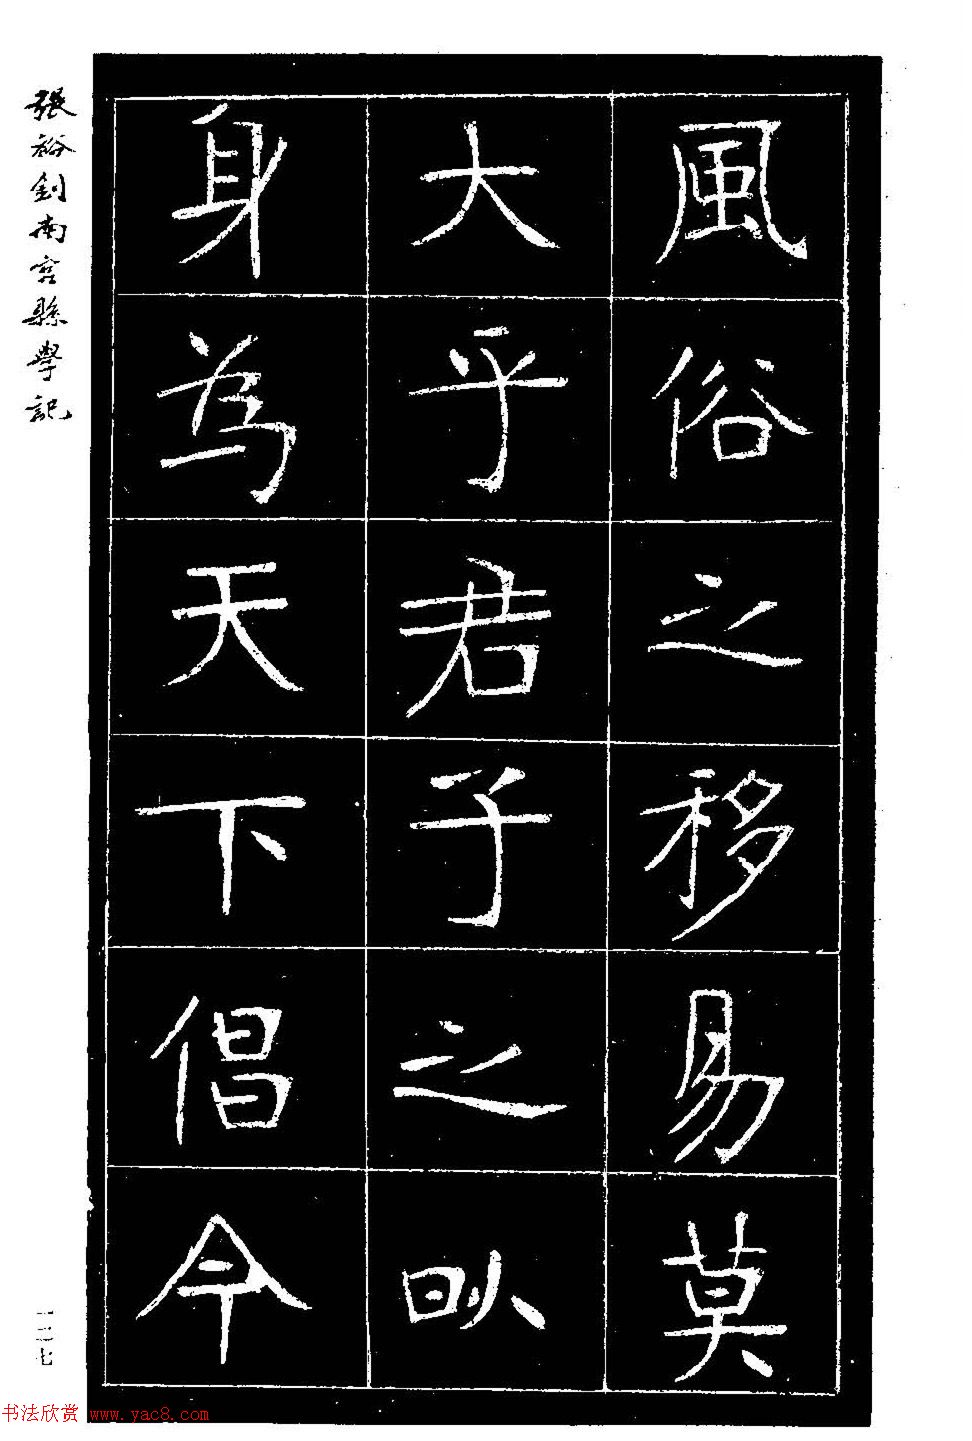 風俗之移易莫
大乎君子之㕥
身為天下倡今
張裕釗南宮縣學記
一二七
书法欣赏 www.yac8.com